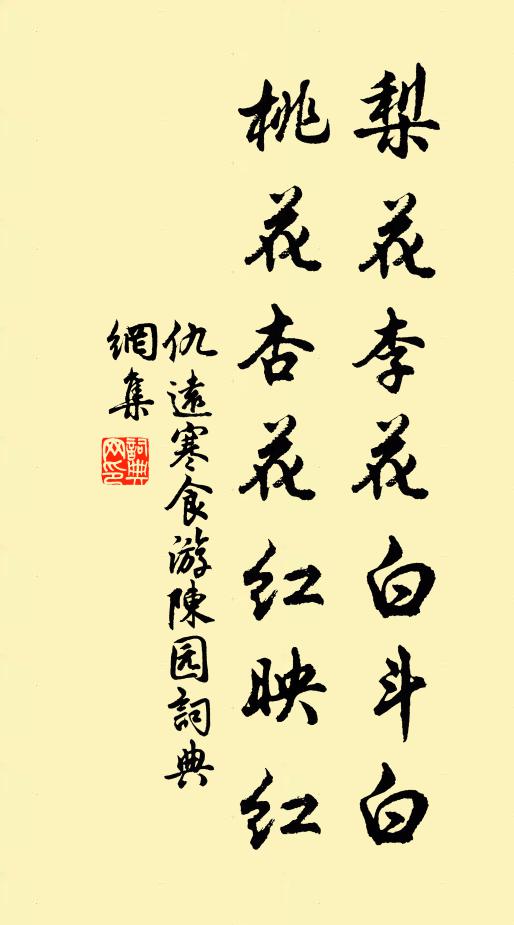 梨花李花白斗白
桃花杏花红映红
仇遠寒食游陳园詞典
網集
詞典
网印